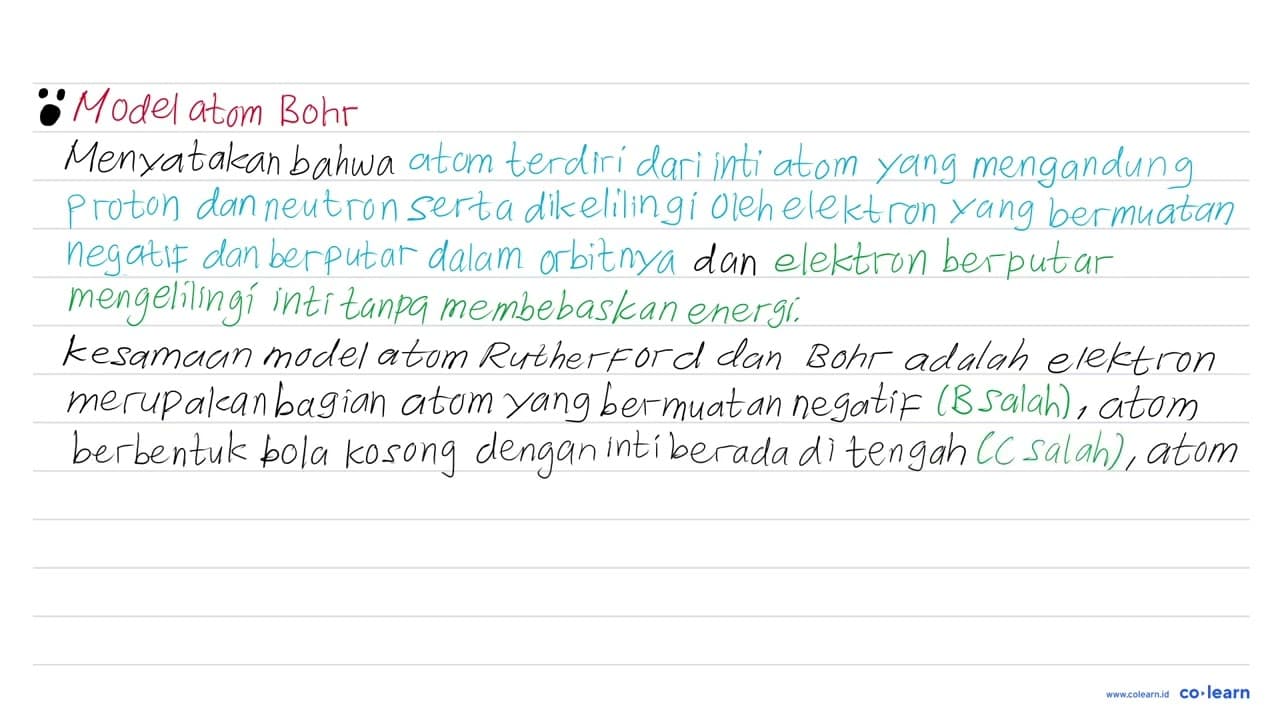 Model atom Bohr
Menyatakan bahwa atom terdiri dari inti atom yang mengandung
proton dan neutron serta dikelilingi oleh elektron yang bermuatan
negatif dan berputar dalam orbitnya dan elektron berputar
mengelilingi inti tanpa membebaskan energi.
kesamaan model atom Rutherford dan Bohr adalah elektron
merupakan bagian atom yang bermuatan negatif (B salah), atom
berbentuk bola kosong dengan inti berada di tengah (C salah), atom
www.colearn.id co·learn